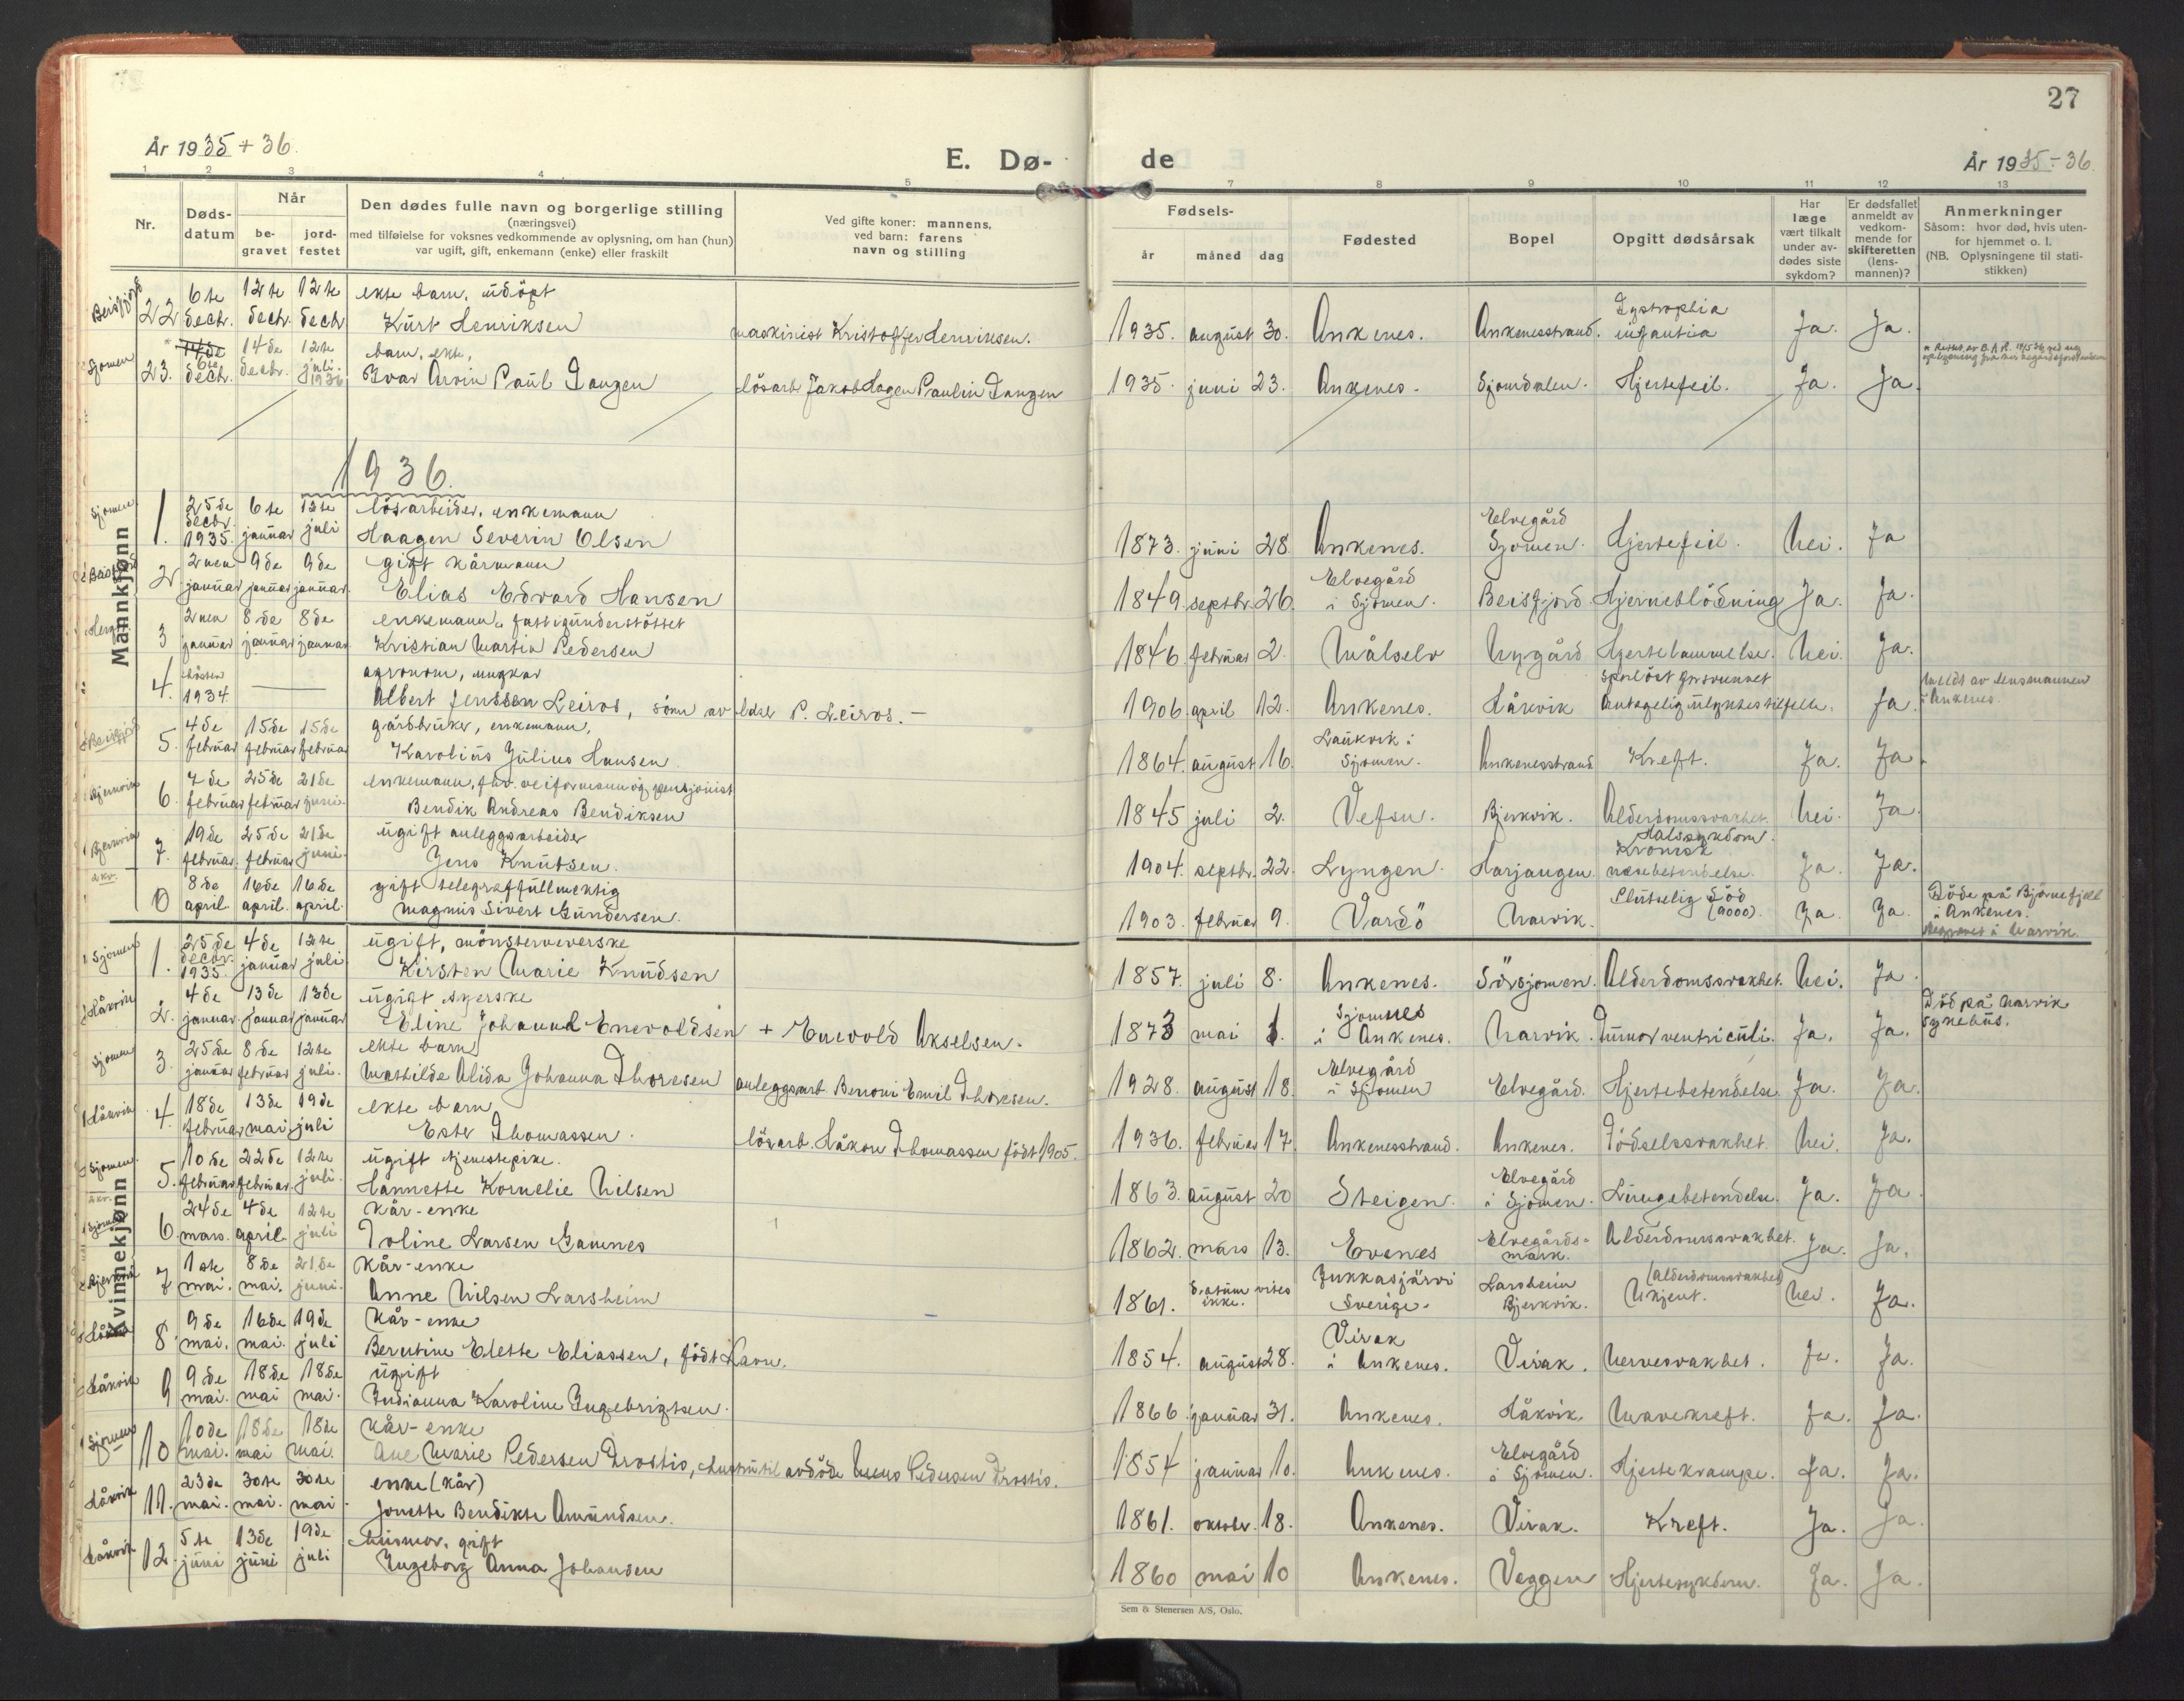 27
År 1935 + 36.
E. Dø-
de
År 1935 - 36.
1 2 3 4 5 7 8 9 10 11 12 13
Nr.
Døds-
datum
Når
be-
gravet
jord-
festet
Den dødes fulle navn og borgerlige stilling
(næringsvei)
med tilføielse for voksnes vedkommende av oplysning, om han (hun)
var ugift, gift, enkemann (enke) eller fraskilt
Ved gifte koner: mannens,
ved barn: farens
navn og stilling
Fødsels-
år måned dag
Fødested
Bopel
Opgitt dødsårsak
Har
læge
vært tilkalt
under av-
dødes siste
sykdom?
Er dødsfallet
anmeldt av
vedkom-
mende for
skifteretten
(lens-
mannen)?
Anmerkninger
Såsom: hvor død, hvis uten-
for hjemmet o. l.
(NB. Oplysningene til stati-
stikken)
Beisfjord 22 6te dectr. 12te dectr. 12te dectr. ekte barn, udöpt
Kurt Henriksen maskinist Kristoffer Henriksen. 1935. august 30. Ankenes. Ankenesstrand. Dystrophia infantia Ja. Ja.
Sjomen 23. 14de 6te dectr. 14de dectr. 12te juli 1936 barn, ekte,
Ivar Arvin Paul Dangen lösarb. Jakob Hagen Paulin Dangen 1935. juni 23. Ankenes. Sjomdalen. Hjertefeil. Ja. Ja.
1936.
Mannkjønn
Sjomen 1. 25de decbr. 1935. 6te januar 12te juli lösarbeider, enkemann
Haagen Severin Olsen 1873. juni 28. Ankenes. Elvegård Sjomen. Hjertefeil. Nei. Ja
Beisfjord 2 2nen januar 9de januar 9de januar. gift kårmann
Elias Edvard Hansen 1849. septbr. 26. Elvegård i Sjomen. Beisfjord Hjerneblödning Ja. Ja.
3 2nen januar 8de januar 8de januar. enkemann, fattigunderstöttet
Kristian Martin Pedersen 1846. februar 2. Målselv Nygård Hjertelammelse. Nei. Ja.
4. hösten 1934. — agronom, ungkar
Albert Jenssen Leiros, sönn av P. Leiros. — 1906 april 12. Ankenes. Håkvik sporlöst forsvunnet Antagelig ulykkestilfelle. Ja. Meldt av lensmannen i Ankenes.
Beisfjord 5. 4de februar 15de februar 15de februar gårdbruker, enkemann,
Karolius Julius Hansen 1864. august 16. Laukvik i Sjomen. Ankenesstrand Kreft. Ja. Ja
Bjerkvik 6. 7de februar 25de februar 21de juni enkemann, fhv. veiformann og pensjonist
Bendik Andreas Bendiksen 1845 juli 2. Vefsn. Bjerkvik. Alderdomssvakhet. Nei. Ja.
Bjerkvik 7. 19de februar. 25de februar. 21de juni. ugift anleggsarbeider
Jens Knutsen. 1904. septbr. 22. Lyngen. Harjangen Halssykdom. Kronisk næsebetendelse. Ja. Ja.
8 8de april 16de april. 16de april. gift telegraffullmektig
Magnus Sivert Gundersen. 1903. februar 9. Vardö Narvik. Plutselig död (9000). Ja. Ja. Döde på Björnefjell i Ankenes. Begravet i Narvik.
Kvinnekjønn
Sjomen 1. 25de decbr. 1935. 4de januar 12te juli ugift, mönsterveverske
Kirsten Marie Knudsen 1857. juli 8. Ankenes. Sörsjomen. Alderdomssvakhet. Nei. Ja.
Håkvik 2. 4de januar. 13de januar 13de januar ugift syerske
Eline Johannd Enevoldsen + Enevold Akselsen. 1873 mai 1. Sjomnes i Ankenes. Narvik. Tumor ventriculi. Ja. Ja. Död på Narvik sykehus.
Sjomen 3. 25de januar 8de februar 12te juli. ekte barn
Mathilde Alida Johanna Thoresen anleggsarb. Benoni Emil Thoresen. 1928. august 18. Elvegård i Sjomen Elvegård. Hjertebetendelse Ja. Ja.
Håkvik 4. 18de februar 13de mai 19de juli ekte barn
Ester Thomassen. lösarb. Håkon Thomassen födt 1905. 1936. februar 17. Ankenesstrand. Ankenes. Födselssvakhet. Nei. Ja.
Sjomen 5. 10de februar 22de februar. 12te juli. ugift tjenestepike.
Hannette Kornelie Nilsen 1863. august 20 Steigen. Elvegård i Sjomen. Lungebetendelse. Ja. Ja
Sjomen 6 24de mars. 4de april. 12te juli kår-enke
Toline Larsen Gamnes 1862. mars 13. Evenes Elvegårdsmark. Alderdomssvakhet. Ja. Ja.
Bjerkvik 7 1ste mai. 8de mai. 21de juni. Kår-enke
Anne Nilsen Larsheim 1861. Datum vites ikke. Jukkasjärvi Sverige. Larsheim Bjerkvik. (Alderdomssvakhet) Ukjent. Nei. Ja.
8. 9de mai. 16de mai. 19de juli Kår-enke
Berntine Elette Eliassen, födt Havn. 1854. august 28. Virak i Ankenes. Virak. Nervesvakhet. Ja. Ja.
Håkvik 9 9de mai. 18de mai 18de mai. ugift
Indianna Karoline Ingebrigtsen. 1866. januar 31. Ankenes. Håkvik. Mavekreft. Ja. Ja.
Sjomen 10 10de mai. 18de mai 18de mai. Kår-enke
Ane Marie Pedersen Trostis, hustru til avdöde Pedersen Trostis. 1854 januar 10. Ankenes. Elvegård i Sjomen. Hjertekrampe. Ja. Ja.
Håkvik 11. 23de mai. 30te mai. 30te mai enke (kår)
Jonette Bendikte Amundsen. 1861. oktobr. 18. Ankenes. Virak. Kreft. Ja. Ja.
Håkvik 12. 5te juni 13de juni 19de juli husmor, gift
Ingeborg Anna Johansen 1860 mai 10 Ankenes. Veggen Hjertesykdom. Ja. Ja.
Sem & Stenersen A/S, Oslo.